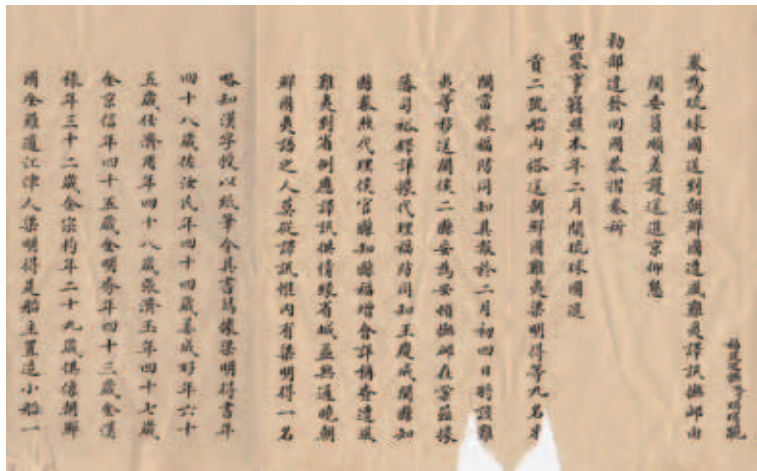 福建巡撫瑞璸跪
奏為琉球國送到朝鮮國遭風難夷譯訊撫卹由
閩委員順差護送進京仰懇
勅部遣發回國恭摺奏祈
聖鑒事竊照本年二月間琉球國進
貢二號船內搭送朝鮮國難夷梁明得等九名來
閩當據福防同知具報於二月初四日將該難
夷等移送閩侯二縣妥為安頓撫卹在案茲據
藩司裕鐸詳據代理福防同知王慶成閩縣知
縣秦煦代理侯官縣知縣福增會詳稱查遭風
難夷到省例應譯訊供情緣省城並無通曉朝
鮮國夷語之人莫從譯訊惟內有梁明得一名
略知漢字授以紙筆令其書寫據梁明得書年
四十八歲佐汝民年四十四歲姜成好年六十
五歲任濟周年四十八歲張濟玉年四十七歲
金京信年四十五歲金明年四十三歲金漢
祿年三十二歲金宗年二十九歲俱係朝鮮
國全羅道江津人梁明得是船主置造小船一